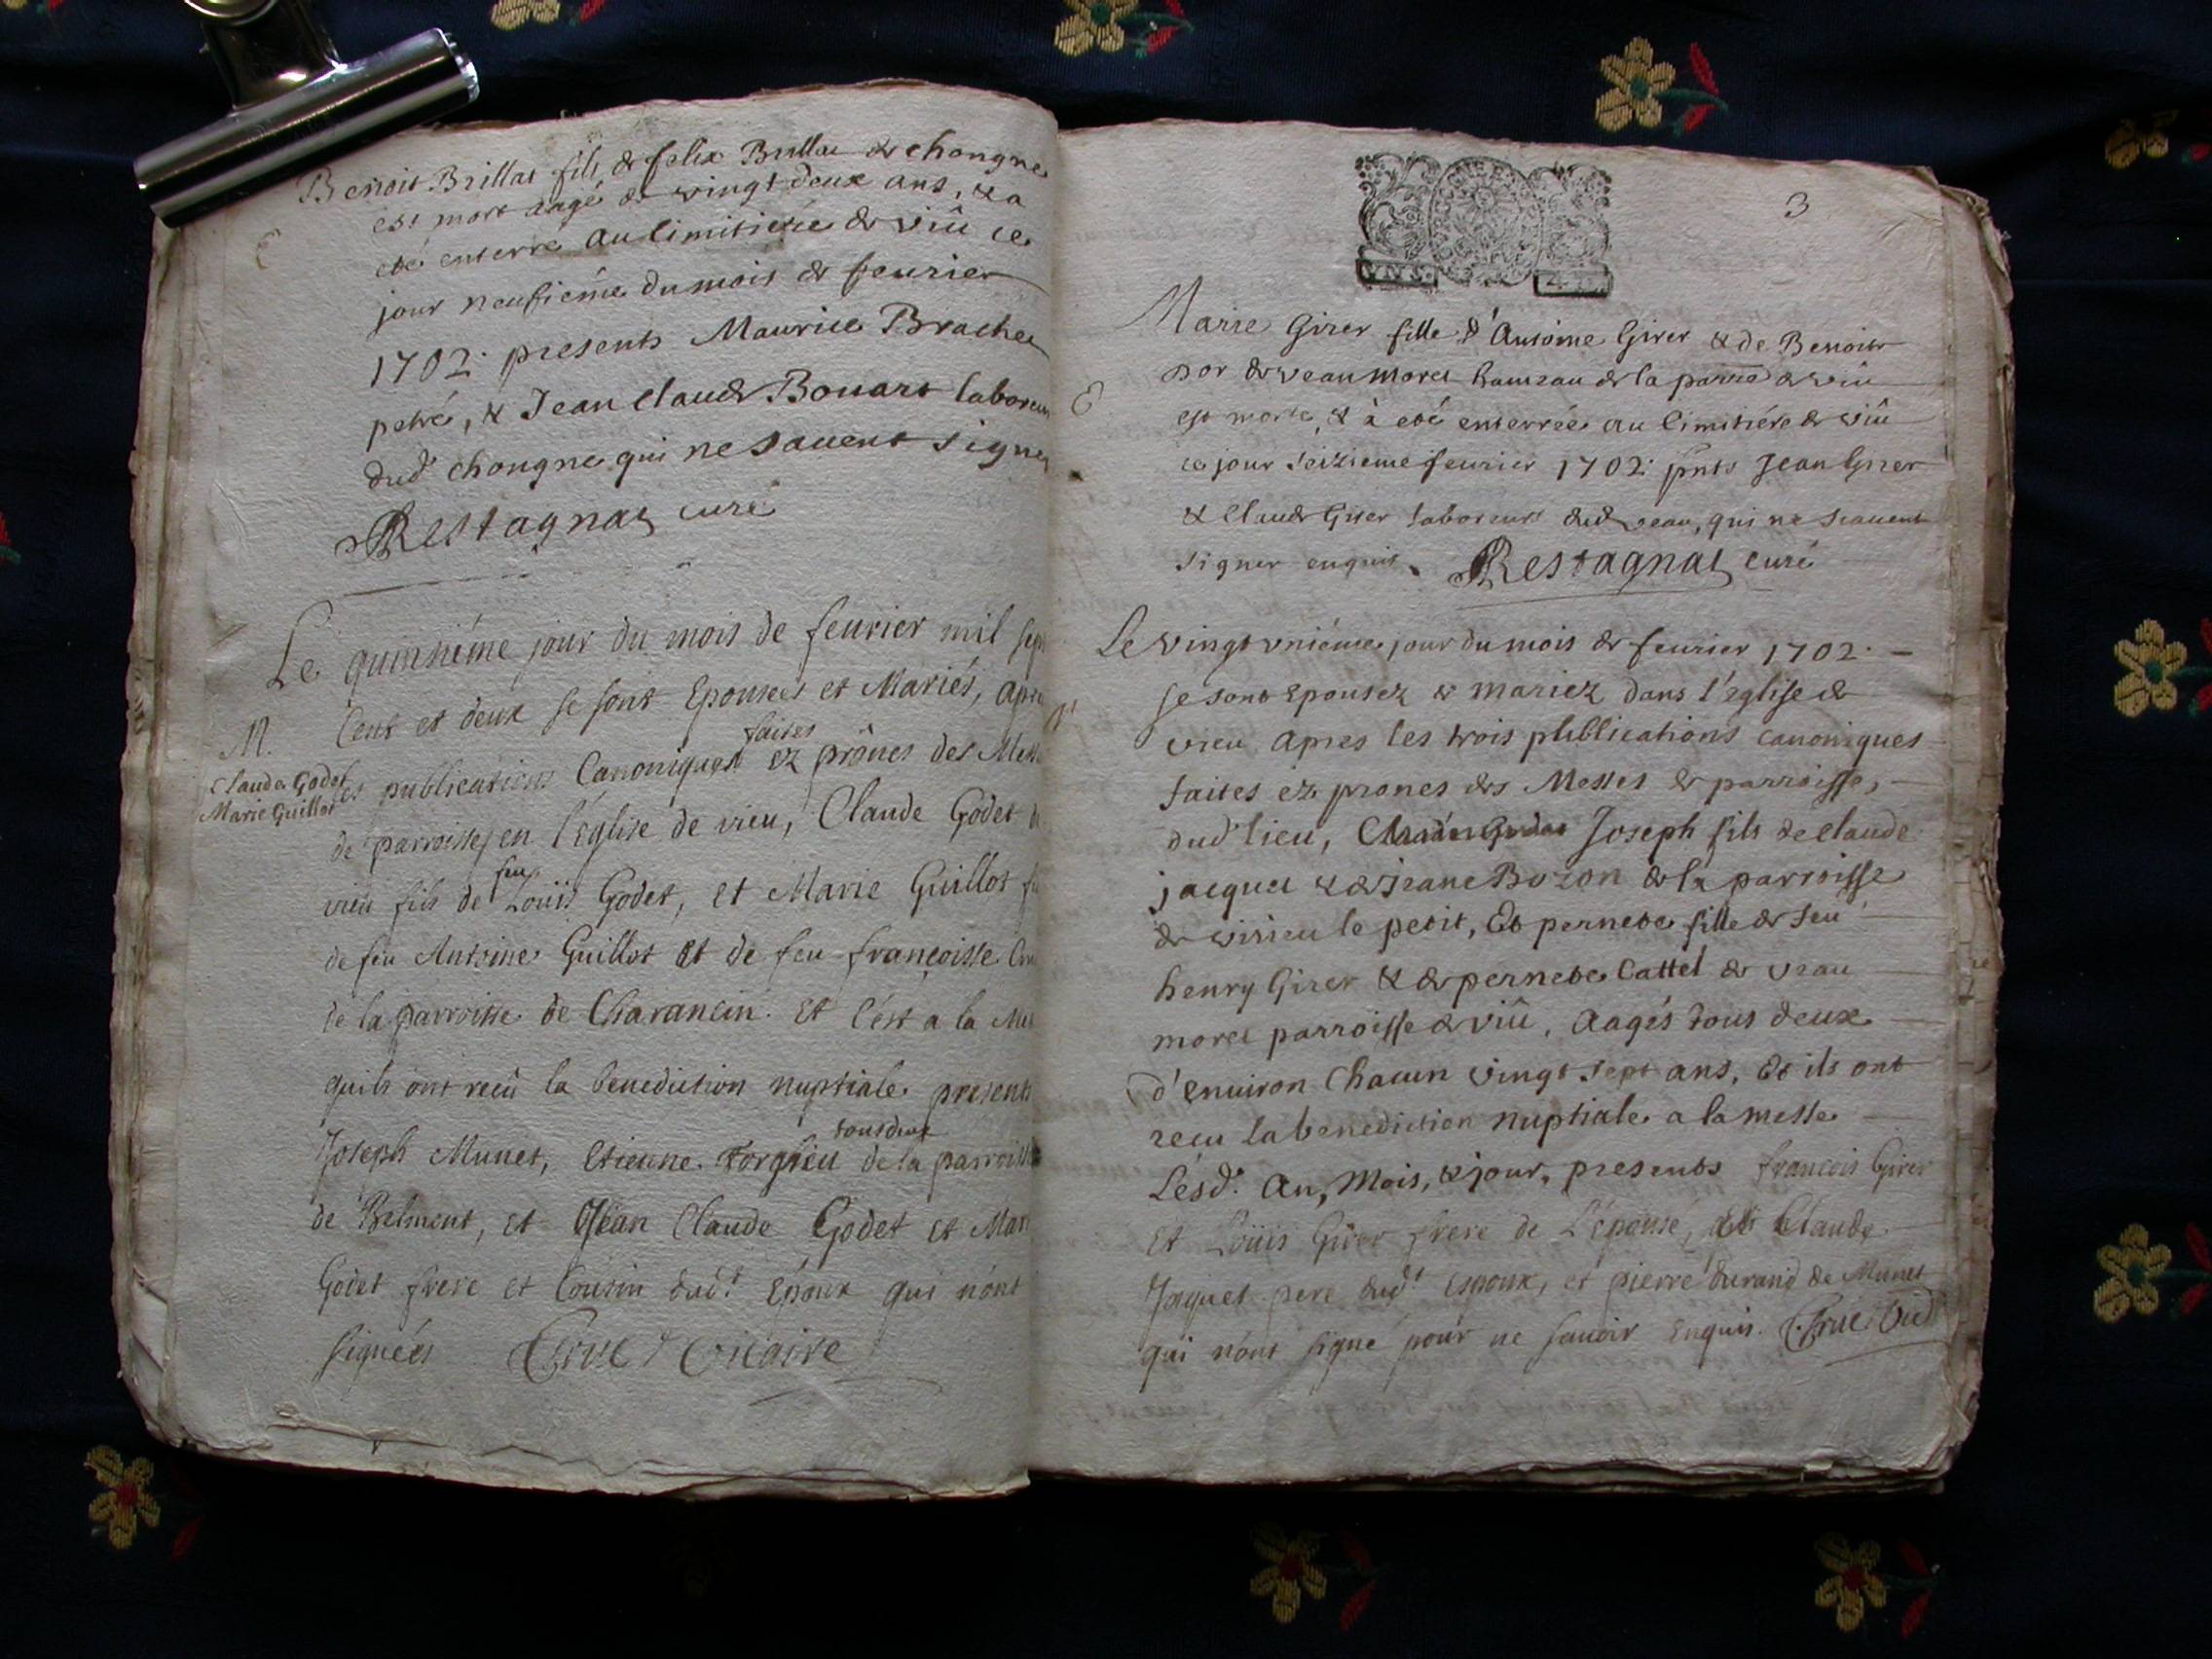 Benoit Brillat fils de felix Brillat de chongne
est mort aagé de vingt deux ans, & a
eté enterré au Cimitiére de viû ce
jour neufiéme du mois de feurier
1702. presents Maurice Brachet
petre, & Jean Claude Bouart laboreurs
dud chongne qui ne sauent signer
Restagnat curé
Le quinsiéme jour du mois de feurier mil sept
M. Cent et deux se sont Epousés et Mariés, apres
Claude Godet
Marie Guillot
les publications Canoniques faites ez prônes des Messes
de parroisse, en l'église de vieu, Claude Godet de
vieu fils de feu Loüis Godet, et Marie Guillot
de feu Antoine Guillot et de feu francoise
de la parroisse de Charancin. Et C'est a la Messe
quils ont recû la benediction nuptiale. presents
Joseph Munet, Etienne tous deux de la parroisse
de Belmont, et Jean Claude Godet et
Godet frere et Cousin dudt Epoux qui n'ont
signées Vicaire
3
Marie Girer fille d'Antoine Girer & de Benoite
de veaumorel hameau de la parre de viû
E est morte, & à eté enterrée au Cimitiére de viû
ce jour seizieme feurier 1702. pnts Jean Girer
& Claude Girer laboreurs dud veau, qui ne scauent
signer enquis. Restagnat curé
Le vingt vniéme jour du mois de feurier 1702. —
se sont Epousez & mariez dans l'eglise de
vieu apres les trois publications canoniques
faites éz prones des Messes de parroisse,
dud lieu, Joseph fils de claude
jacquet & de jeane Bozon de la parroisse
de virieu le petit, Et pernete fille de feu
henry Girer & de pernete Cattel de veau
morel parroisse de viû, aagés tous deux
d'enuiron Chacun vingt sept ans, Et ils ont
recu la benediction nuptiale a la messe
Lesd. an, Mois, & jour, presents francois Girer
Et Loüis Girer frere de L'épouse, Claude
Jaquet pere dudt Espoux, et pierre durand de Munet
qui n'ont signé pour ne sauoir enquis.